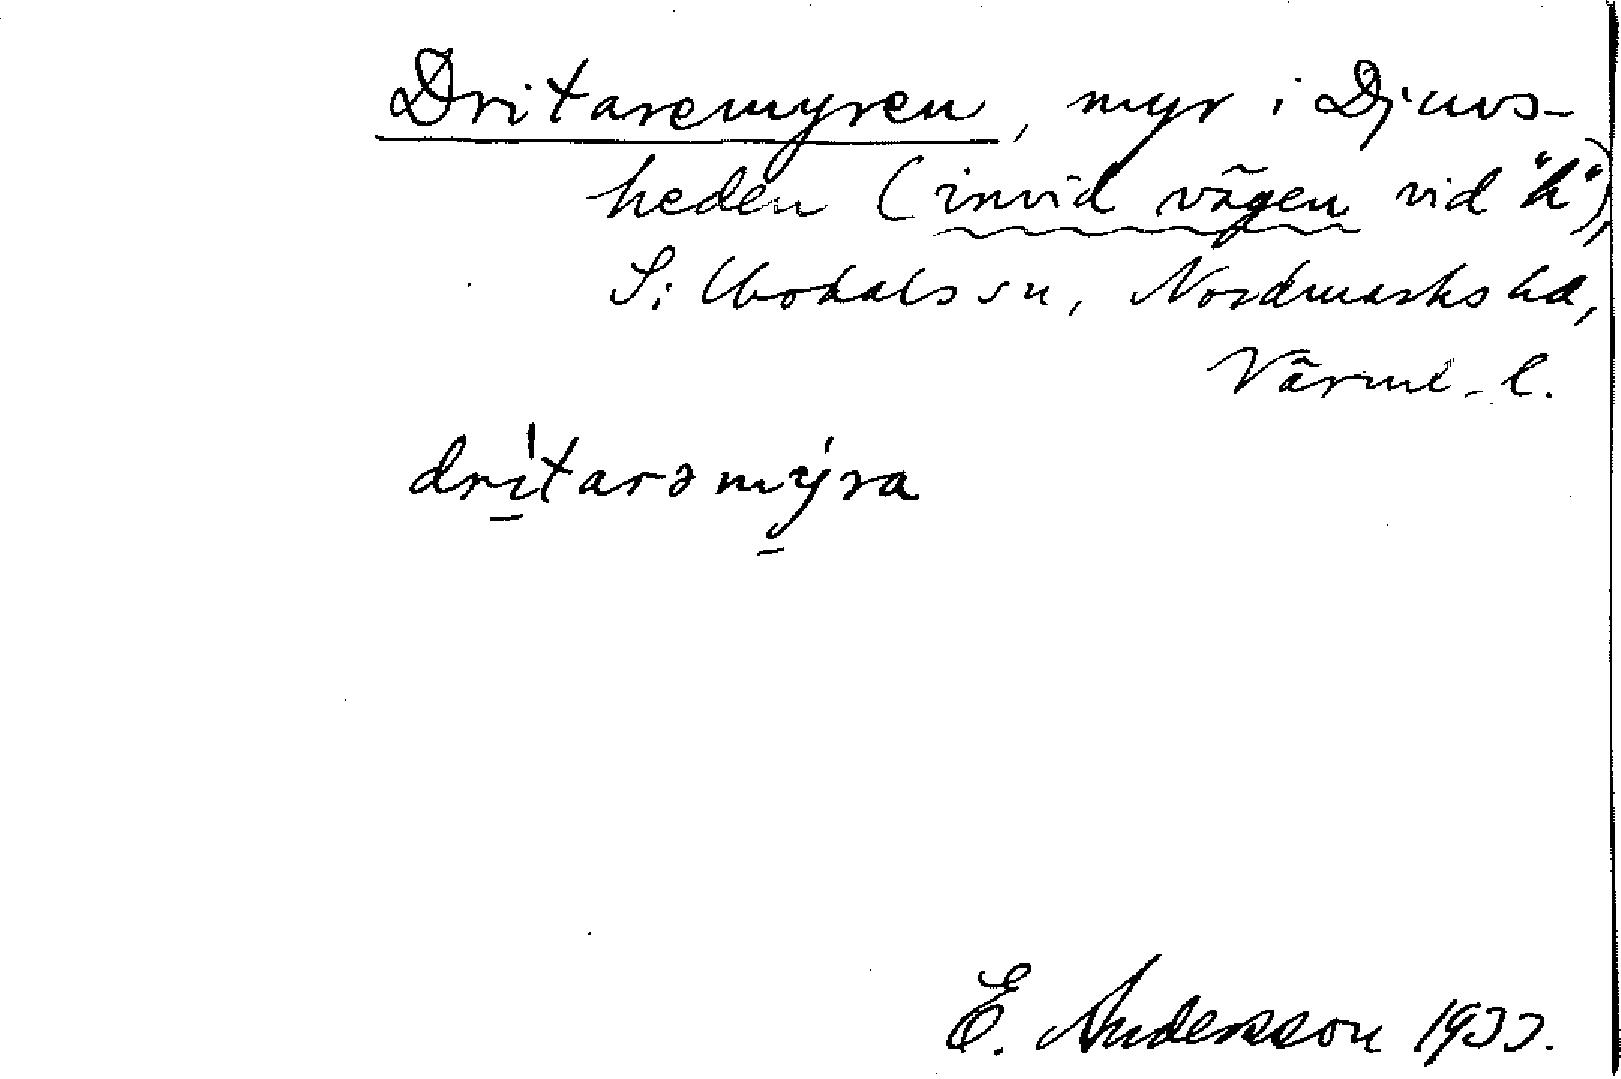 Dritaremyren, myr i Djuvs-
heden (invid vägen vid "h"),
S: Ny sn, Nordmarks hd,
Värml. l.
drítarəmýra
E. Andersson 1933.